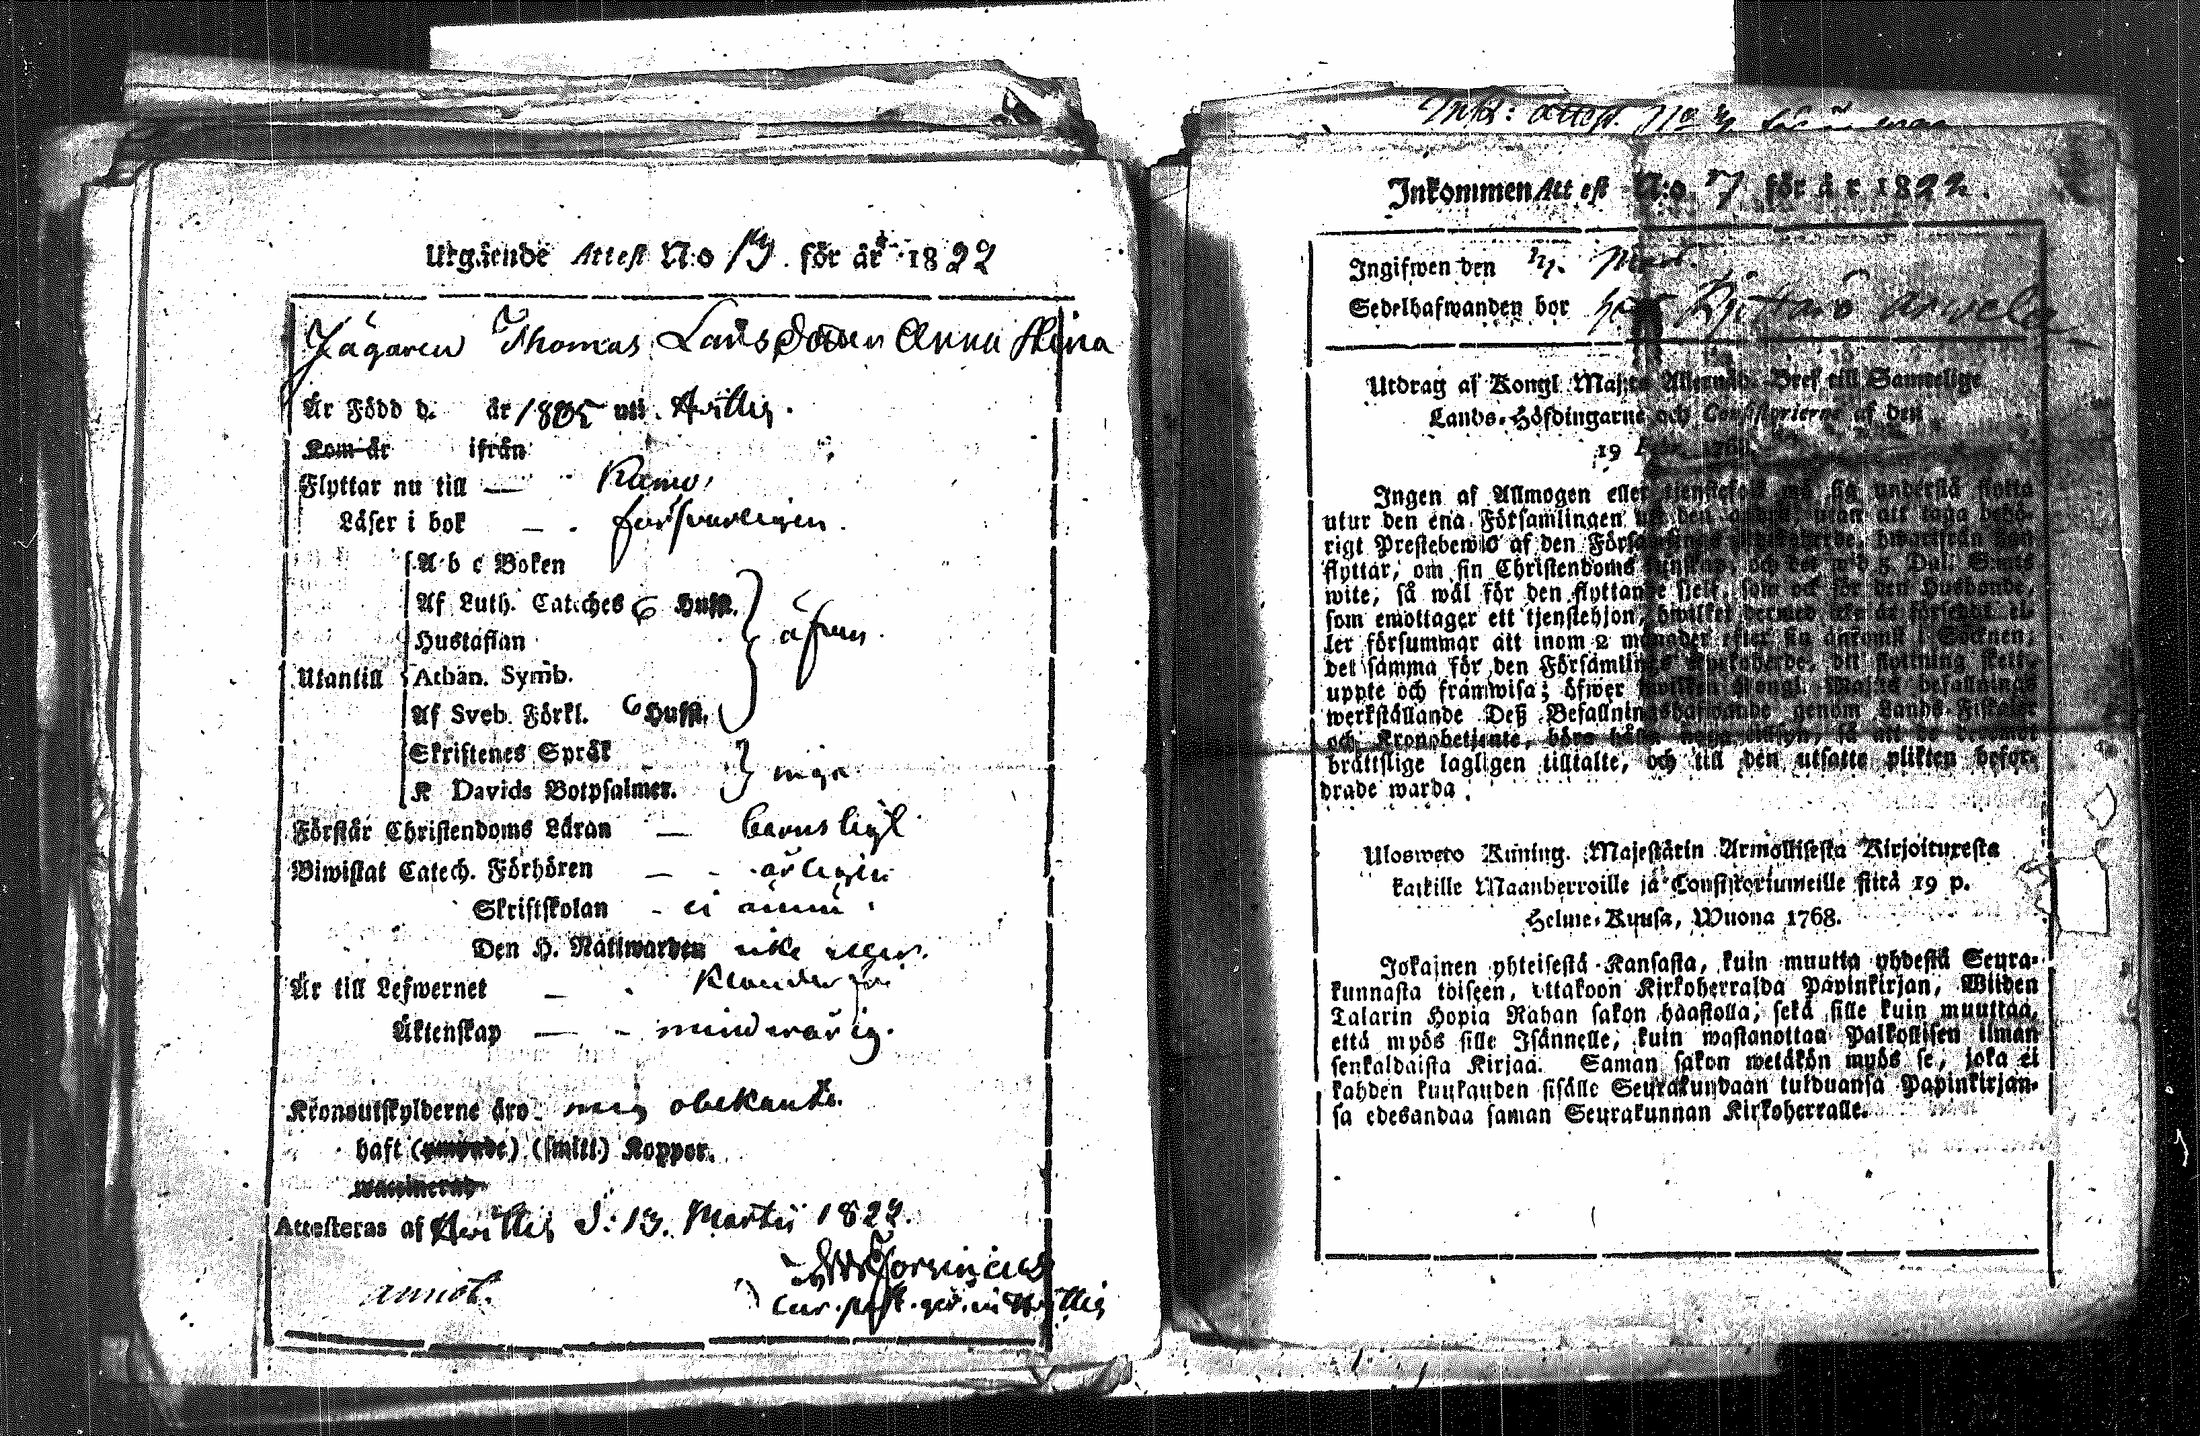 Utgående Attest N:o 13. för år 1822
Jägaren Thomas Lars Doter Anna Stina
Är Född d. år 1805 uti Hvittis.
Kom år ifrån
Flyttar nu till — Kumo,
Läser i bok — . försvarligen.
A b c Boken
Af Luth. Catches 6 Hufst.
Hustaflan
äfven.
Utantill Athan. Symb.
Af Sveb. Förkl. 6 Hufst.
Skriftenes Språk
K Davids Botpsalmer.
inga
Förstår Christendoms Läran — barnsligt
Biwistat Catech. Förhören — - årligen
Skriftskolan - ei ännu
Den H. Nattwarden
Är till Lefwernet — . Klanderfri
Äktenskap — - minderårig.
Kronoutskylderne äro mig obekante.
haft (smitt.) Koppor.
waccinerad
Attesteras af Hvittis d: 13. Martii 1822.
annot.
Cur. past. ger. in Hvittis
Inkommen Attest N:o 7 för år 1822.
Ingifwen den
Sedelhafwanden bor
Utdrag af Kongl. Maj:ts Allernåd. Bref till Samtelige
Lands-Höfdingarne och Consistorierne af den
19 1768.
Ingen af Allmogen eller tjenstefolk må sig understå flytta
utur den ena Församlingen uti den andra, utan att taga behö-
rigt Prestebewis af den Församlings Kyrkoherde, hwarifrån han
flyttar, om sin Christendoms kunskap, och det wid 5 Dal. S:mts
wite, så wäl för den flyttande sjelf, som ock för den Husbonde,
som emottager ett tjenstehjon, hwilket dermed icke är försedt, el-
ler försummar att inom 2 månader efter sin ankomst i Socknen,
det samma för den Församlings Kyrkoherde, dit flyttning skett,
uppte och framwisa; öfwer hwilken Kongl. Maj:ts befallnings
werkställande Deß Befallningshafwande genom Lands-Fiskaler
och Kronobetjente, böra hafwa noga tillsyn, så att de
brättslige lagligen tilltalte, och till den utsatte plikten befor-
drade warda.
Ulosweto Kuning. Majestätin Armollisesta Kirjoituxesta
kaikille Maanherroille ja Consistoriumeille siitä 19 p.
Helme-Kuusa, Wuona 1768.
Jokainen yhteisestä Kansasta, kuin muutta yhdestä Seura-
kunnasta toiseen, ottakoon Kirkoherralda Papinkirjan, Wiiden
Talarin Hopia Rahan sakon haastolla, sekä sille kuin muuttaa,
että myös sille Isännelle, kuin wastanottaa Palkollisen ilman
senkaldaista Kirjaa. Saman sakon wetäkön myös se, joka ei
kahden kuukauden sisälle Seurakundaan tulduansa Papinkirjan-
sa edesandaa saman Seurakunnan Kirkoherralle.